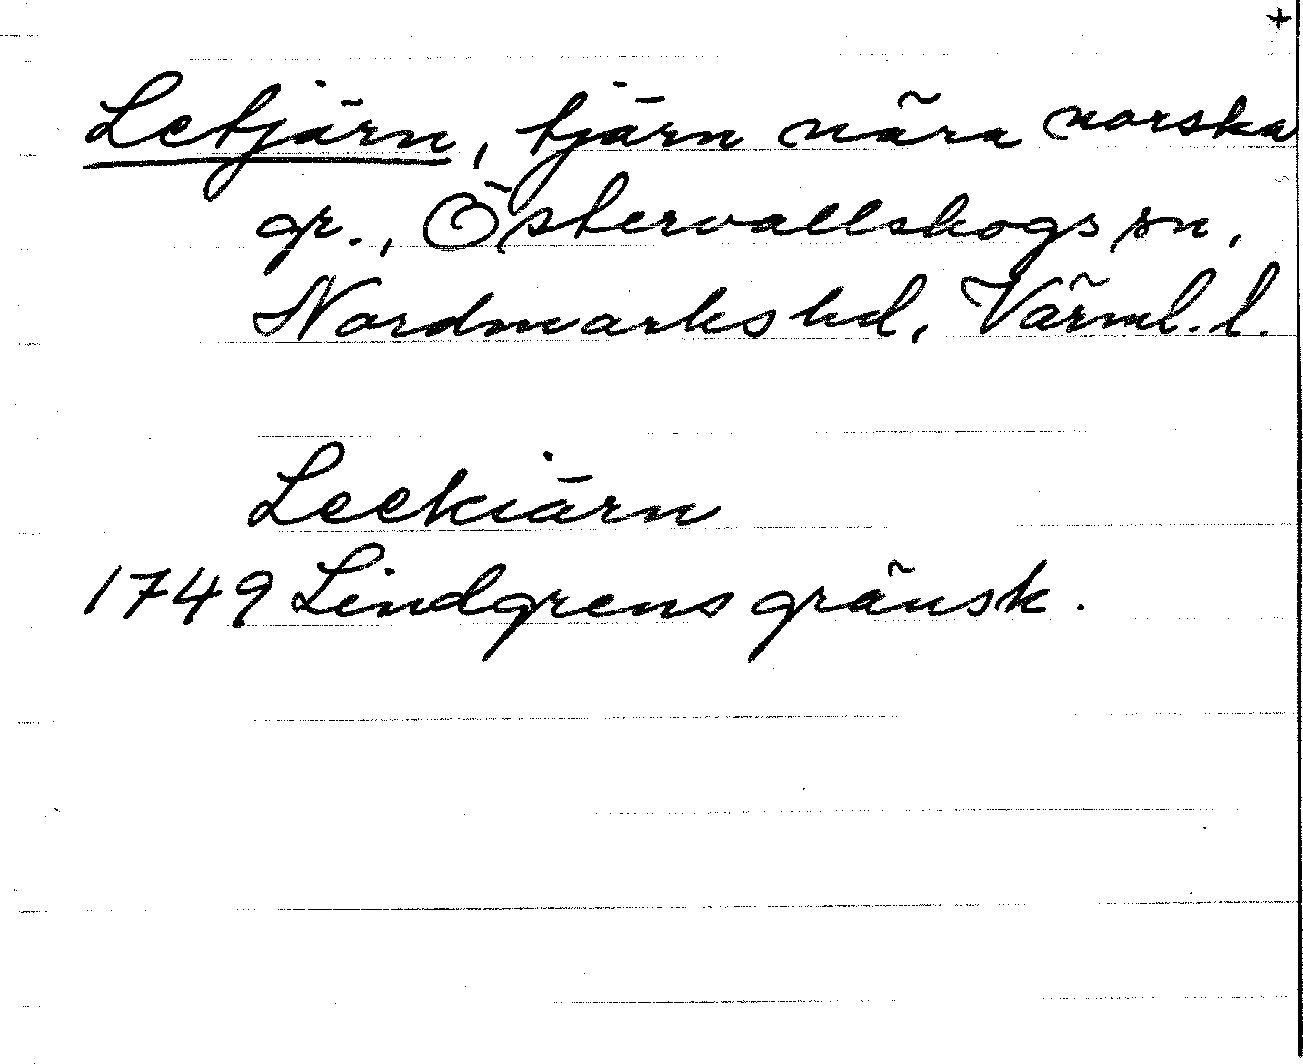 +
Letjärn, tjärn nära norska
gr., Östervallskogs sn,
Nordmarks hd, Värml. l.
Leekiärn
1749 Lindgrens gränsk.